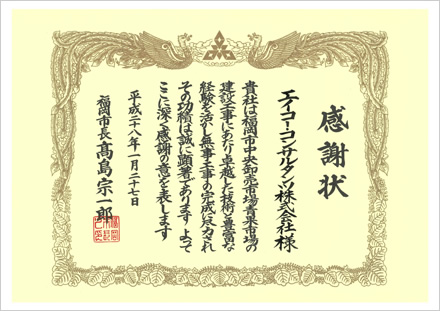 感謝状
エイコー・コンサルタンツ株式会社 様
貴社は福岡市中央卸売市場青果市場の
建設工事にあたり卓越した技術と豊富な
経験を活かし無事工事の完成に尽力され
その功績は誠に顕著であります よって
ここに深く感謝の意を表します
平成二十八年一月二十七日
福岡市長 髙島宗一郎